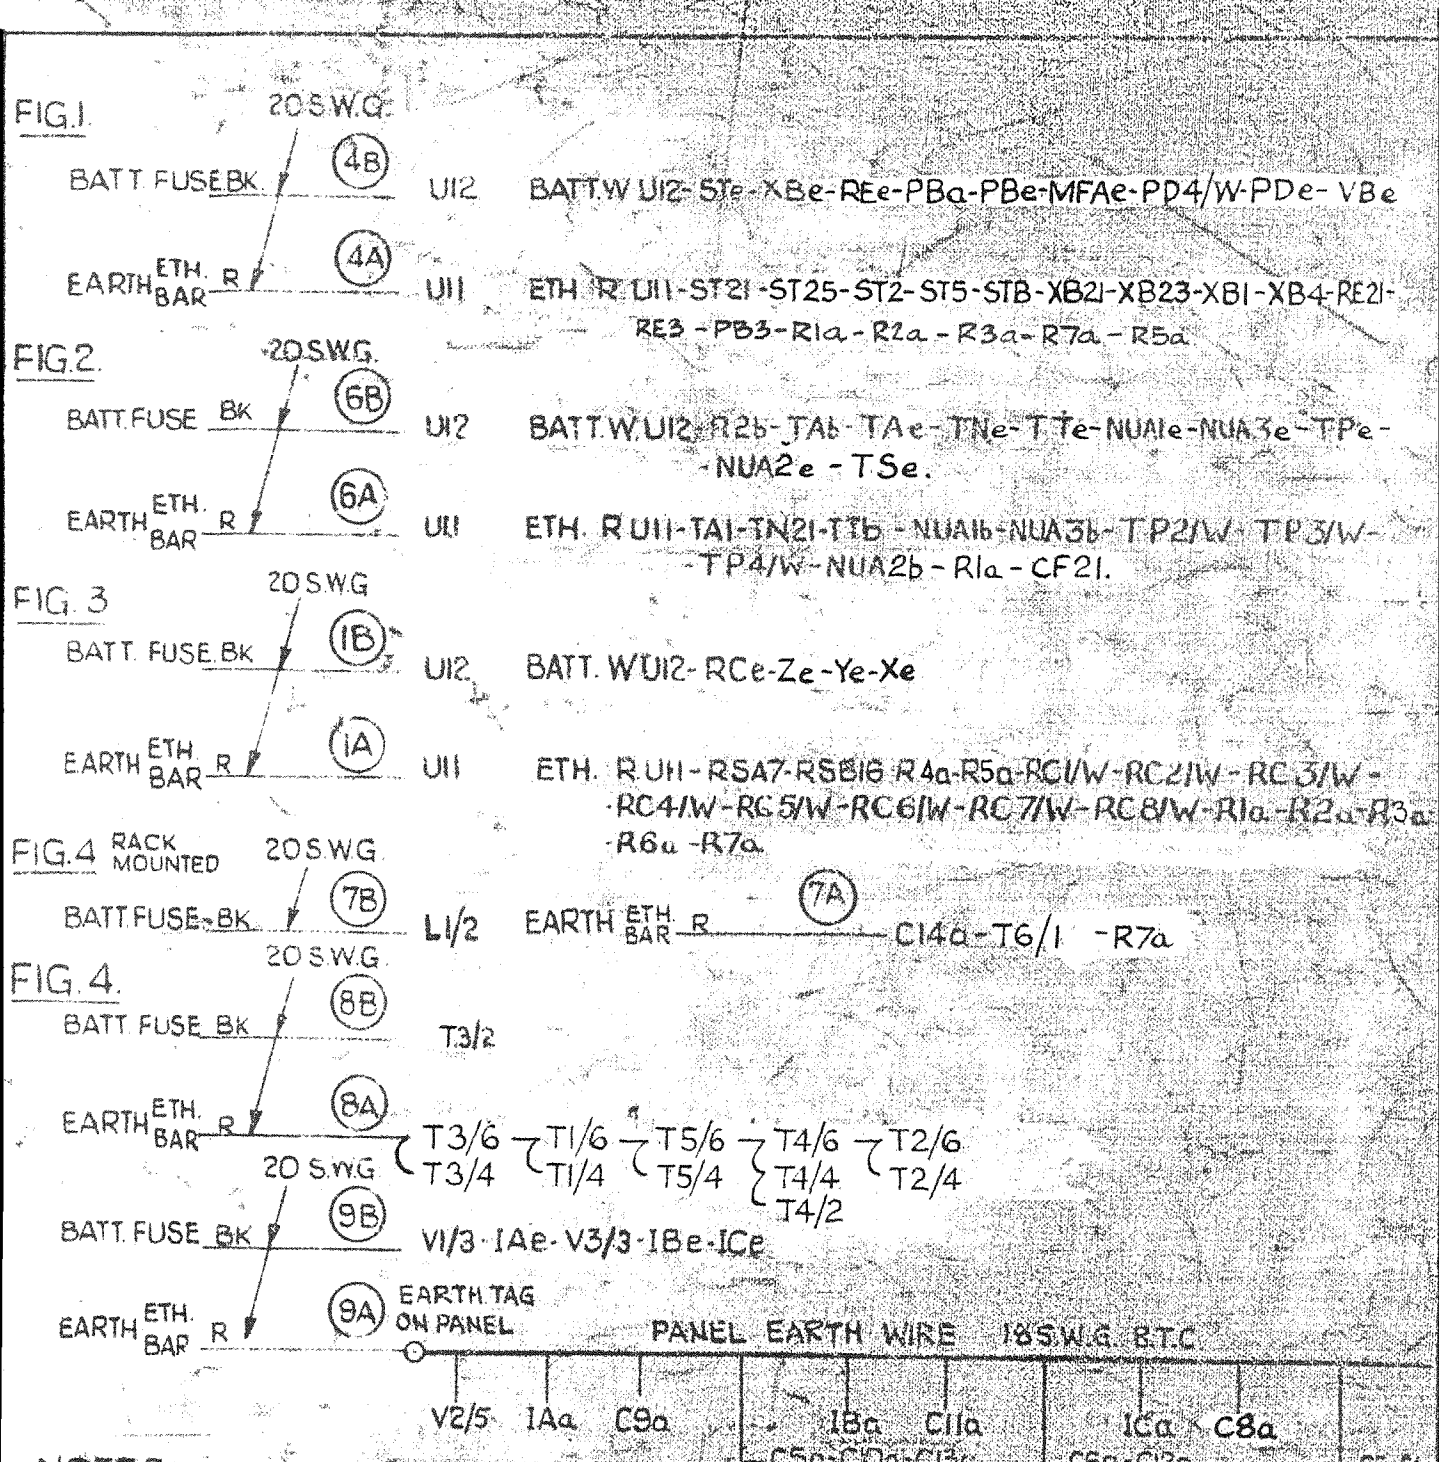 FIG.1.
20 S.W.G.
BATT. FUSE BK. 4B U12 BATT.W U12-STe-XBe-REe-PBa-PBe-MFAe-PD4/W-PDe-VBe
EARTH ETH. BAR R 4A U11 ETH R U11-ST21-ST25-ST2-ST5-STB-XB21-XB23-XB1-XB4-RE21-
RE3-PB3-R1a-R2a-R3a-R7a-R5a
FIG.2.
20 S.W.G.
BATT. FUSE BK 6B U12 BATT.W.U12-R2b-TAb-TAe-TNe-TTe-NUA1e-NUA3e-TPe-
-NUA2e-TSe.
EARTH ETH. BAR R 6A U11 ETH. R U11-TA1-TN21-TTb-NUA1b-NUA3b-TP2/W-TP3/W-
-TP4/W-NUA2b-R1a-CF21.
FIG. 3
20 S.W.G
BATT. FUSE. BK 1B U12 BATT. W U12-RCe-Ze-Ye-Xe
EARTH ETH. BAR R 1A U11 ETH. R.U11-RSA7-RSB16-R4a-R5a-RC1/W-RC2/W-RC3/W-
-RC4/W-RC5/W-RC6/W-RC7/W-RC8/W-R1a-R2a-R3a
-R6a-R7a
FIG.4 RACK MOUNTED 20 S.W.G.
BATT. FUSE BK 7B L1/2 EARTH ETH. BAR R 7A C14a-T6/1 -R7a
FIG. 4.
20 S.W.G.
BATT. FUSE BK 8B T3/2
EARTH ETH. BAR R 8A T3/6 T1/6 T5/6 T4/6 T2/6
T3/4 T1/4 T5/4 T4/4 T2/4
T4/2
20 S.W.G
BATT. FUSE BK 9B V1/3-IAe-V3/3-IBe-ICe
EARTH ETH. BAR R 9A EARTH TAG ON PANEL PANEL EARTH WIRE 18 S.W.G. B.T.C
V2/5 IAa C9a IBa C11a ICa C8a
NOTES